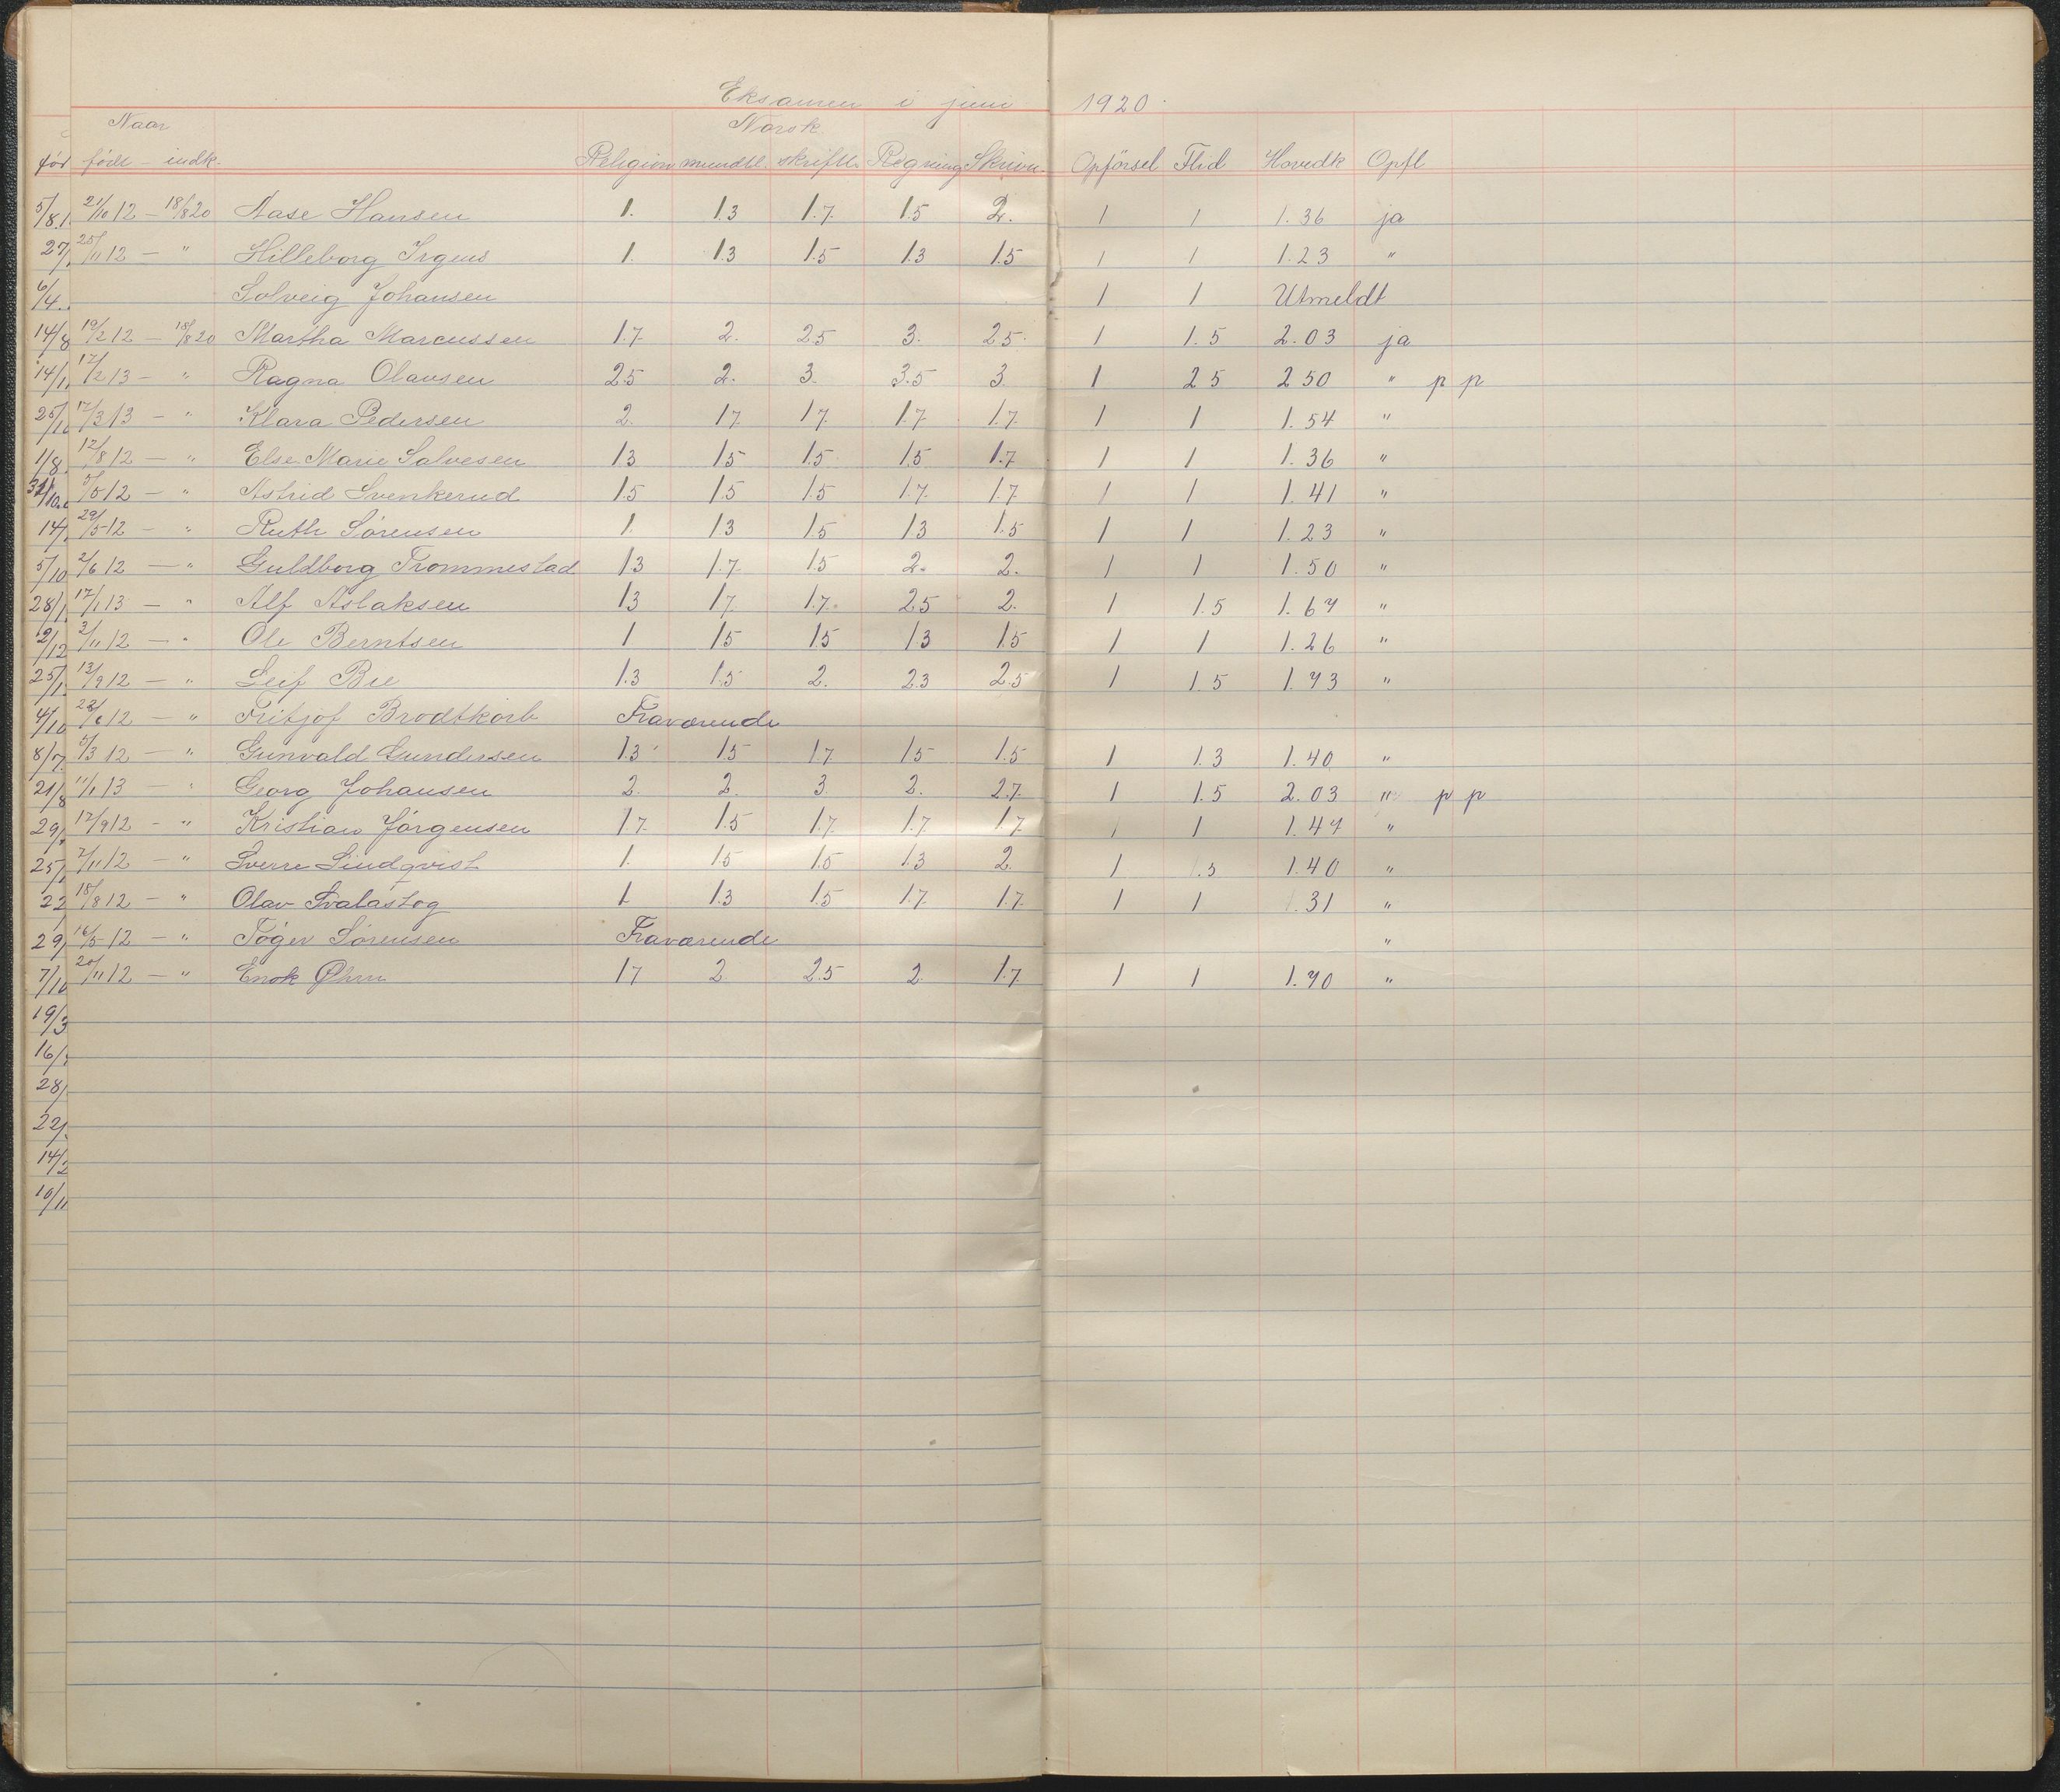 Eksamen i juni 1920.
Naar Norsk
født – indk. Religion mundtl. skriftl. Regning Skrivn. Opförsel Flid Hovedk Opfl
5/8.1 21/10 12 – 18/8 20 Aase Hansen 1. 1.3 1.7. 1.5 2. 1 1 1.36 ja
27/ 25/11 12 – " Hilleborg Irgens 1. 1.3 1.5 1.3 1.5 1 1 1.23 "
6/4. Solveig Johansen 1 1 Utmeldt
14/8 19/2 12 – 18/8 20 Martha Marcussen 1.7 2. 2.5 3. 2.5. 1 1.5 2.03 ja
14/1 17/2 13 – " Ragna Olavsen 2.5 2. 3. 3.5 3 1 2 5 2 50 " p p
25/10 17/3 13 – " Klara Pedersen 2. 1.7 1.7. 1.7. 1.7. 1 1 1.54 "
1/8. 12/8 12 – " Else Marie Salvesen 1.3 1.5 1.5 1.5 1.7 1 1 1.36 "
31/10. 5/5 12 – " Astrid Svenkerud 1.5 1.5 1.5 1.7. 1.7 1 1 1.41 "
14/ 29/5 12 – " Ruth Sørensen 1. 1.3 1.5 1.3 1.5 1 1 1.23 "
5/10 2/6 12 – " Guldborg Trommestad 1.3 1.7. 1.5 2. 2. 1 1 1.50 "
28/1 17/1 13 – " Alf Aslaksen 1.3 1.7. 1.7. 2.5 2. 1 1.5 1.67 "
9/12 2/11 12 – " Ole Berntsen 1 1.5 1.5 1.3 1.5 1 1 1.26 "
25/1 13/9 12 – " Leif Bie 1.3 1.5 2. 2.3 2.5 1 1.5 1.73 "
4/10 23/6 12 – " Fritjof Brodtkorb Fraværende
8/7 5/3 12 – " Gunvald Gundersen 1.3 1.5 1.7 1.5 1.5 1 1.3 1.40 "
21/8 11/1 13 – " Georg Johansen 2. 2. 3. 2. 2.7. 1 1.5 2.03 " p p
29/ 12/9 12 – " Kristian Jörgensen 1.7. 1.5 1.7. 1.7. 1.7 1 1 1.47 "
25/ 7/11 12 – " Sverre Lindqvist 1. 1.5 1.5 1.3 2. 1 1.3 1.40 "
22 18/8 12 – " Olav Svalastog 1 1.3 1.5 1.7. 1.7. 1 1 1.31 "
29/ 16/5 12 – " Töger Sörensen Fraværende "
7/10 20/11 12 – " Enok Øhrn 1.7 2. 2.5 2. 1.7. 1 1 1.70 "
19/3
16/
28/
22/
14/2
10/11